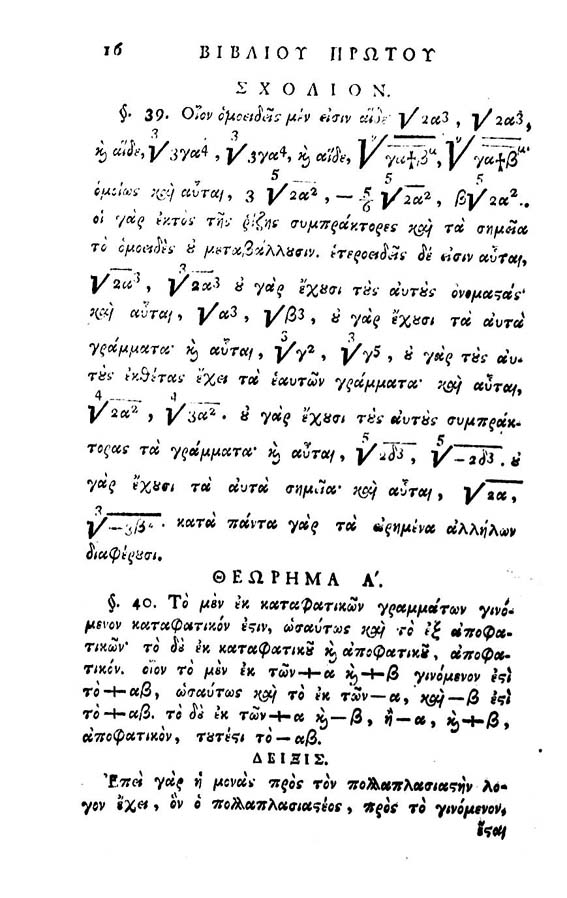 16 ΒΙΒΛΙΟΥ ΠΡΩΤΟΥ
ΣΧΟΛΙΟΝ.
§. 39. Οἷον ὁμοειδεῖς μέν εἰσιν αἵδε √2α³, √2α³,
ϗ αἵδε, ³√3γα⁴, ³√3γα⁴, ϗ αἵδε, ᵛ√γα+βᵘ, ᵛ√γα+βᵘ
ὁμοίως καὶ αὗται, 3 ⁵√2α², — 5/6 ⁵√2α², β⁵√2α².
οἱ γὰρ ἐκτὸς τῆς ῥίζης συμπράκτορες καὶ τὰ σημεῖα
τὸ ὁμοειδὲς ȣ μεταβάλλουσιν. ἑτεροειδεῖς δέ εἰσιν αὗται,
√2ω³, ³√2α3 ȣ γὰρ ἔχȣσι τȣ̀ς αὐτȣ̀ς ὀνομαστάς·
καὶ αὗται, √α3, √β3, ȣ γὰρ ἔχȣσι τὰ αὐτὰ
γράμματα· ϗ αὗται, ³√γ², ³√γ5, ȣ γὰρ τȣ̀ς αὐ-
τȣ̀ς ἐκθέτας ἔχει τὰ ἑαυτῶν γράμματα· καὶ αὗται,
⁴√2α², ⁴√3α². ȣ γὰρ ἔχȣσι τȣ̀ς αὐτȣ̀ς συμπράκ-
τορας τὰ γράμματα· ϗ αὗται, ⁵√2δ3, ⁵√—2δ3. ȣ
γὰρ ἔχȣσι τὰ αὐτὰ σημεῖα· καὶ αὗται, √2α,
³√—3βᵘ. κατὰ πάντα γὰρ τὰ ὡρημένα ἀλλήλων
διαφέρȣσι.
ΘΕΩΡΗΜΑ Α΄.
§. 40. Τὸ μὲν ἐκ καταφατικῶν γραμμάτων γινό-
μενον καταφατικόν ἐστιν, ὡσαύτως καὶ τὸ ἐξ ἀποφα-
τικῶν· τὸ δὲ ἐκ καταφατικȣ͂ ϗ ἀποφατικȣ͂, ἀποφα-
τικόν. οἷον τὸ μὲν ἐκ τῶν + α ϗ + β γινόμενον ἐστὶ
τὸ + αβ, ὡσαύτως καὶ τὸ ἐκ τῶν — α, καὶ — β ἐστὶ
τὸ + αβ. τὸ δὲ ἐκ τῶν + α ϗ — β, ἢ — α, ϗ + β,
ἀποφατικόν, τȣτέστι τὸ — αβ.
ΔΕΙΞΙΣ.
Ἐπεὶ γὰρ ἡ μονὰς πρὸς τὸν πολλαπλασιαστὴν λό-
γον ἔχει, ὃν ὁ πολλαπλασιαστέος, πρὸς τὸ γινόμενον,
ἔσται